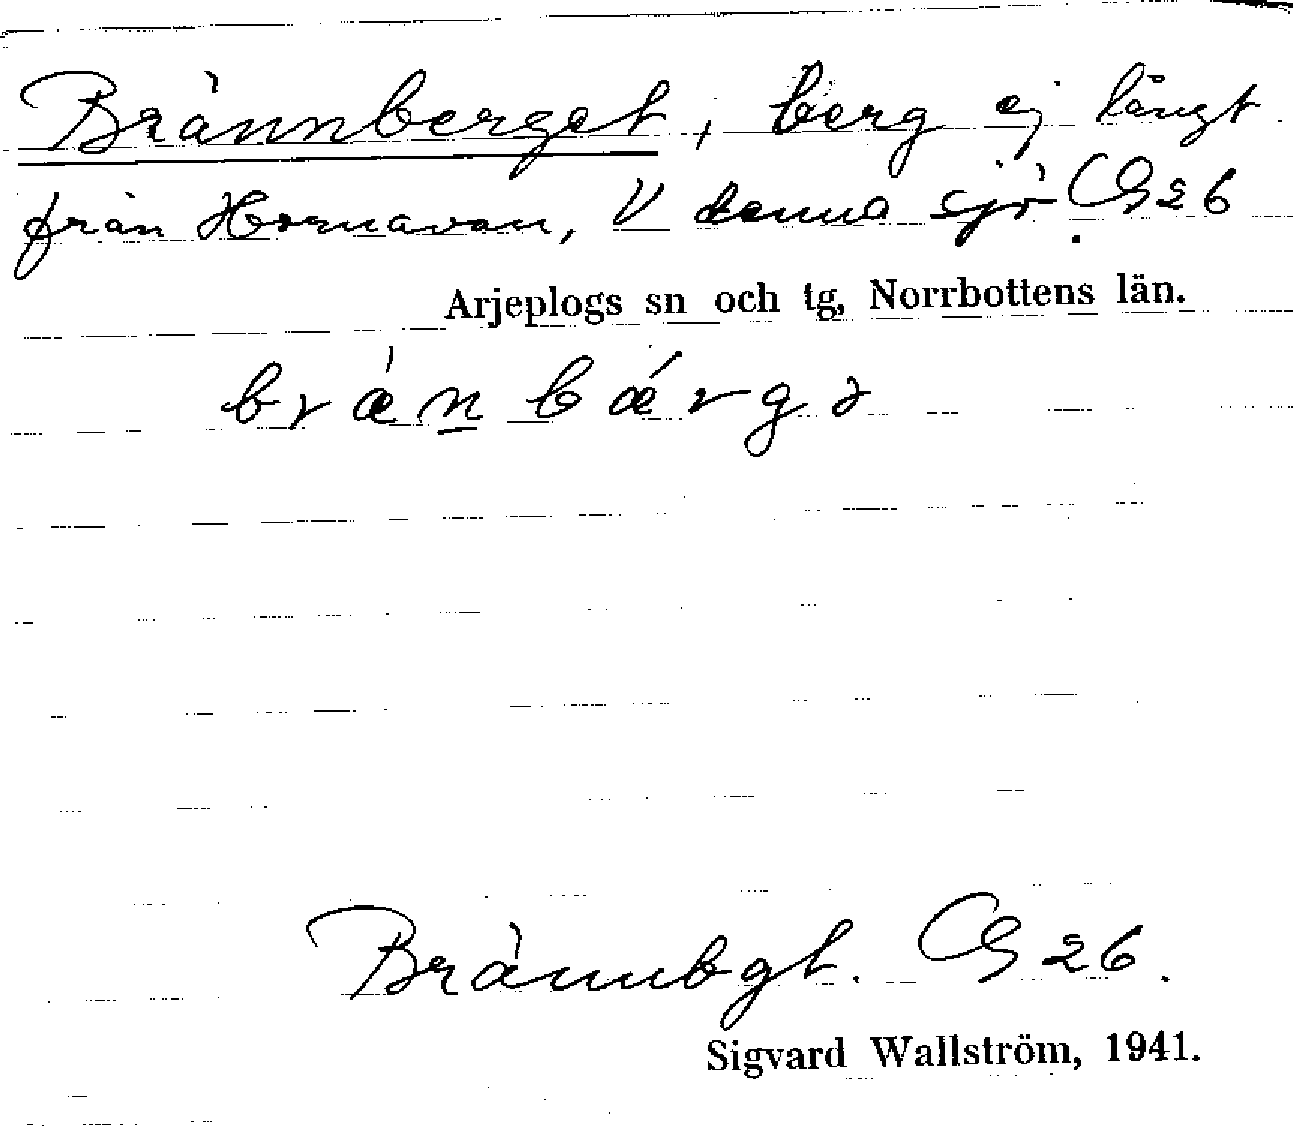 Brännberget, berg ej långt
från Hornavan, V denna sjö. G26
Arjeplogs sn och tg, Norrbottens län.
brǽn̲bǽrgə
Brännbgt. G26.
Sigvard Wallström, 1941.